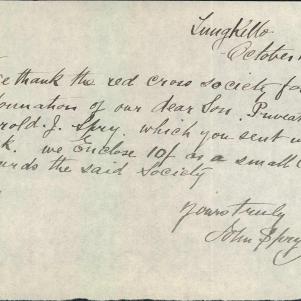 Lunghetto
October
thank the red cross society fo
formation of our dear Son. Privat
rold. J. Spry. which you sent u
k. we Enclose 10/ as a small
ards the said Society
yours truly
John Spry